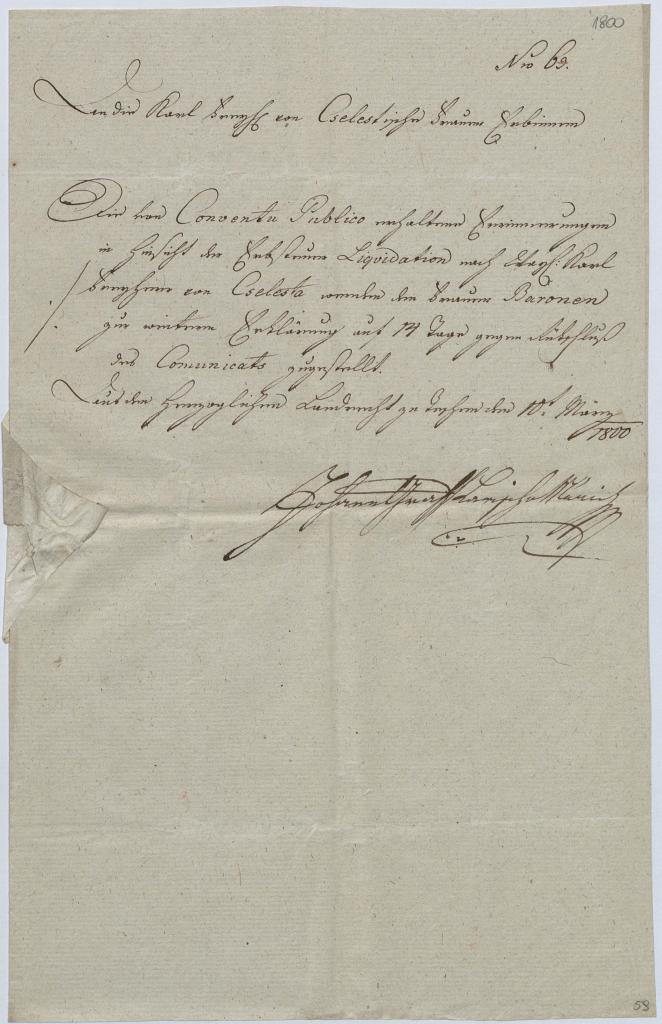 1800
Nro 69.
An die Karl Freyh. von Cselestische Frauen Erbinnen
Die von Conventu Publico erhaltene Erinnerungen
in Hinsicht der Erbsteuer Liquidation nach Karl
Freyherrn von Cselesta werden den Frauen Baronen
zur weitern Erklärung auf 14 Tage gegen Rükschluß
des Comunicats zugestellt.
Aus dem Herzoglichen Landrecht zu Teschen den 10t März
1800
Johann Graf Larisch
58